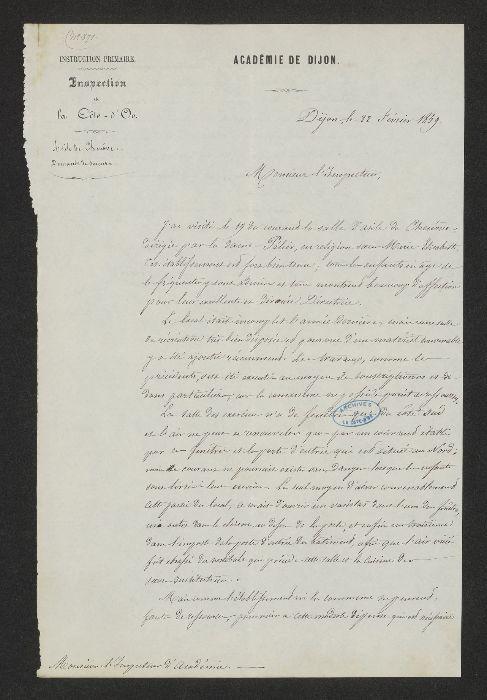 INSTRUCTION PRIMAIRE.
ACADÉMIE DE DIJON.
Inspection
de
la Côte-d'Or.
Dijon, le 22 Février 1859.
Monsieur l'Inspecteur,
J'ai visité le 19 du courant la salle d'asile de
dirigée par la dame en religion sœur Marie
Cet établissement est fort bien tenu; tous les enfants en âge de
le fréquenter y sont admis et tous montrent beaucoup d'affection
pour leur excellente et dévouée Directrice.
Le local était incomplet l'année dernière, mais une salle
de récréation très bien disposée et pourvue d'un matériel convenable
y a été ajoutée récemment. Les travaux, comme les
précédents, ont été exécutés au moyen de souscriptions et de
dons particuliers, car la commune ne possède pas de ressources.
La salle des exercices n'a de fenêtres que du côté Sud
et l'air ne peut se renouveler que par un courant établi
par ces fenêtres et la porte d'entrée qui est située au Nord;
mais ce courant ne pourrait exister sans danger lorsque les enfants
sont livrés à leurs exercices. Le seul moyen d'aérer convenablement
cette partie du local, a mais d'ouvrir un vasistas dans l'une des fenêtres,
un autre dans la cloison, au dessus de la porte, et enfin un troisième
dans l'imposte de la porte d'entrée du bâtiment, afin que l'air vicié
fût chassé du vestibule qui précède cette salle et la cuisine de
son institutrice.
Mais comme l'établissement ni la commune ne peuvent,
faute de ressources, pourvoir à cette modeste dépense, qui est nécessaire
ARCHIVES
LA CÔTE D'OR
Monsieur l'Inspecteur d'Académie.